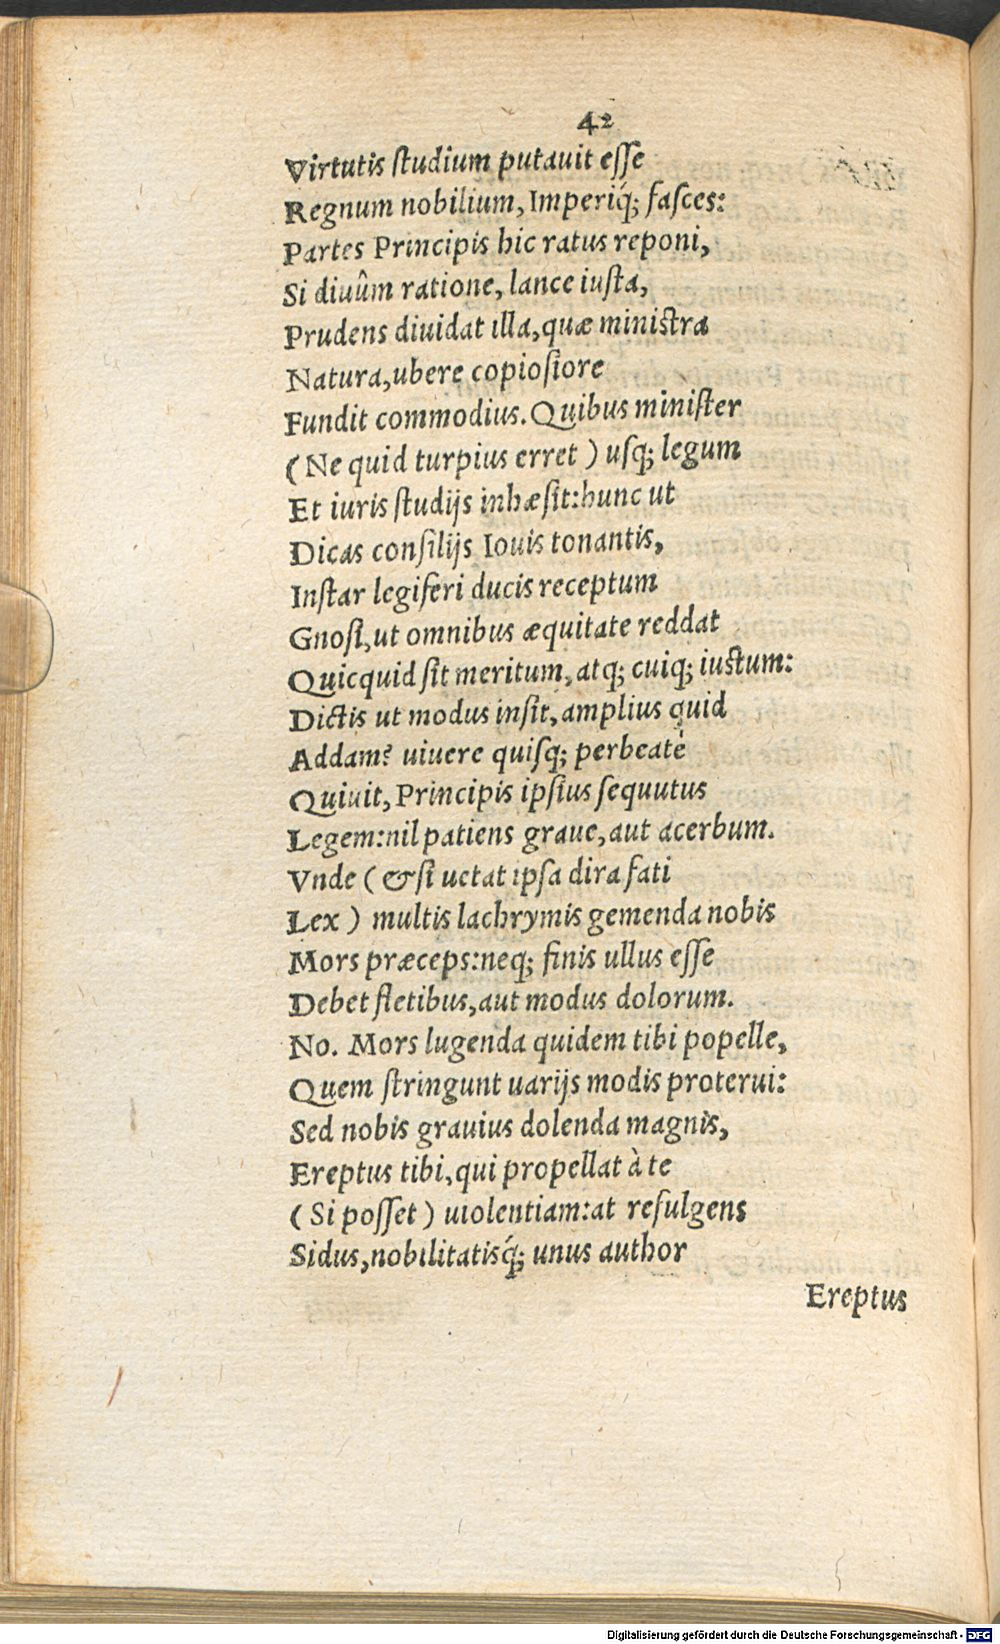 42
Virtutis ſtudium putauit eſſe
Regnum nobilium, Imperiq́; faſces:
Partes Principis hic ratus reponi,
Si diuûm ratione, lance iuſta,
Prudens diuidat illa, quæ miniſtra
Natura, ubere copioſiore
Fundit commodius. Quibus miniſter
( Ne quid turpius erret ) uſq; legum
Et iuris ſtudijs inhæſit: hunc ut
Dicas conſilijs Iouis tonantis,
Inſtar legiferi ducis receptum
Gnoſi, ut omnibus æquitate reddat
Quicquid ſit meritum, atq; cuiq; iuſtum:
Dictis ut modus inſit, amplius quid
Addam? uiuere quiſq; perbeatè
Quiuit, Principis ipſius ſequutus
Legem: nil patiens graue, aut acerbum.
Vnde ( & ſi uetat ipſa dira fati
Lex ) multis lachrymis gemenda nobis
Mors præceps: neq; finis ullus eſſe
Debet fletibus, aut modus dolorum.
No. Mors lugenda quidem tibi popelle,
Quem ſtringunt uarijs modis proterui:
Sed nobis grauius dolenda magnis,
Ereptus tibi, qui propellat à te
( Si poſſet ) uiolentiam: at refulgens
Sidus, nobilitatisq́; unus author
Ereptus
Digitalisierung gefördert durch die Deutsche Forschungsgemeinschaft - DFG